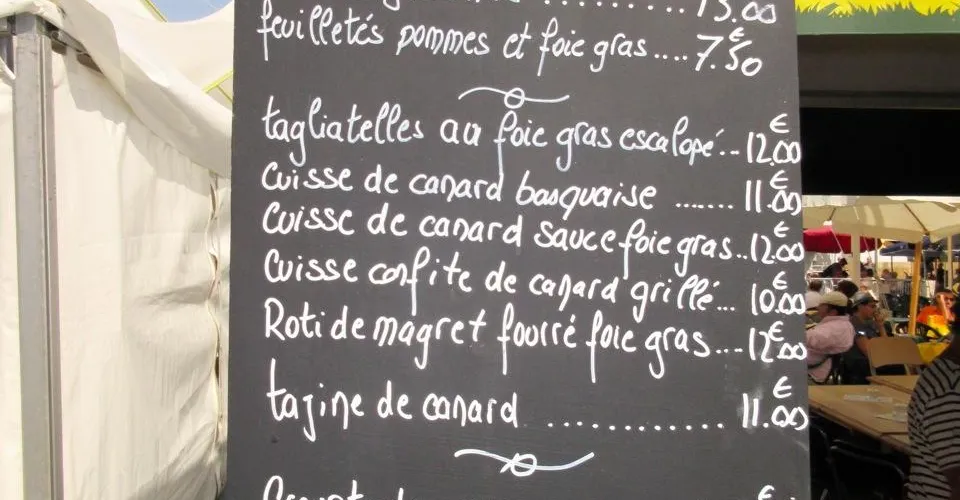 15.00
feuilletés pommes et foie gras.... 7.50€
tagliatelles au foie gras escalopé... 12.00€
Cuisse de canard basquaise ....... 11.00€
Cuisse de canard sauce foie gras.. 12.00€
Cuisse confite de canard grillé... 10.00€
Roti de magret fourré foie gras...- 12.00€
tajine de canard ............ 11.00€
€